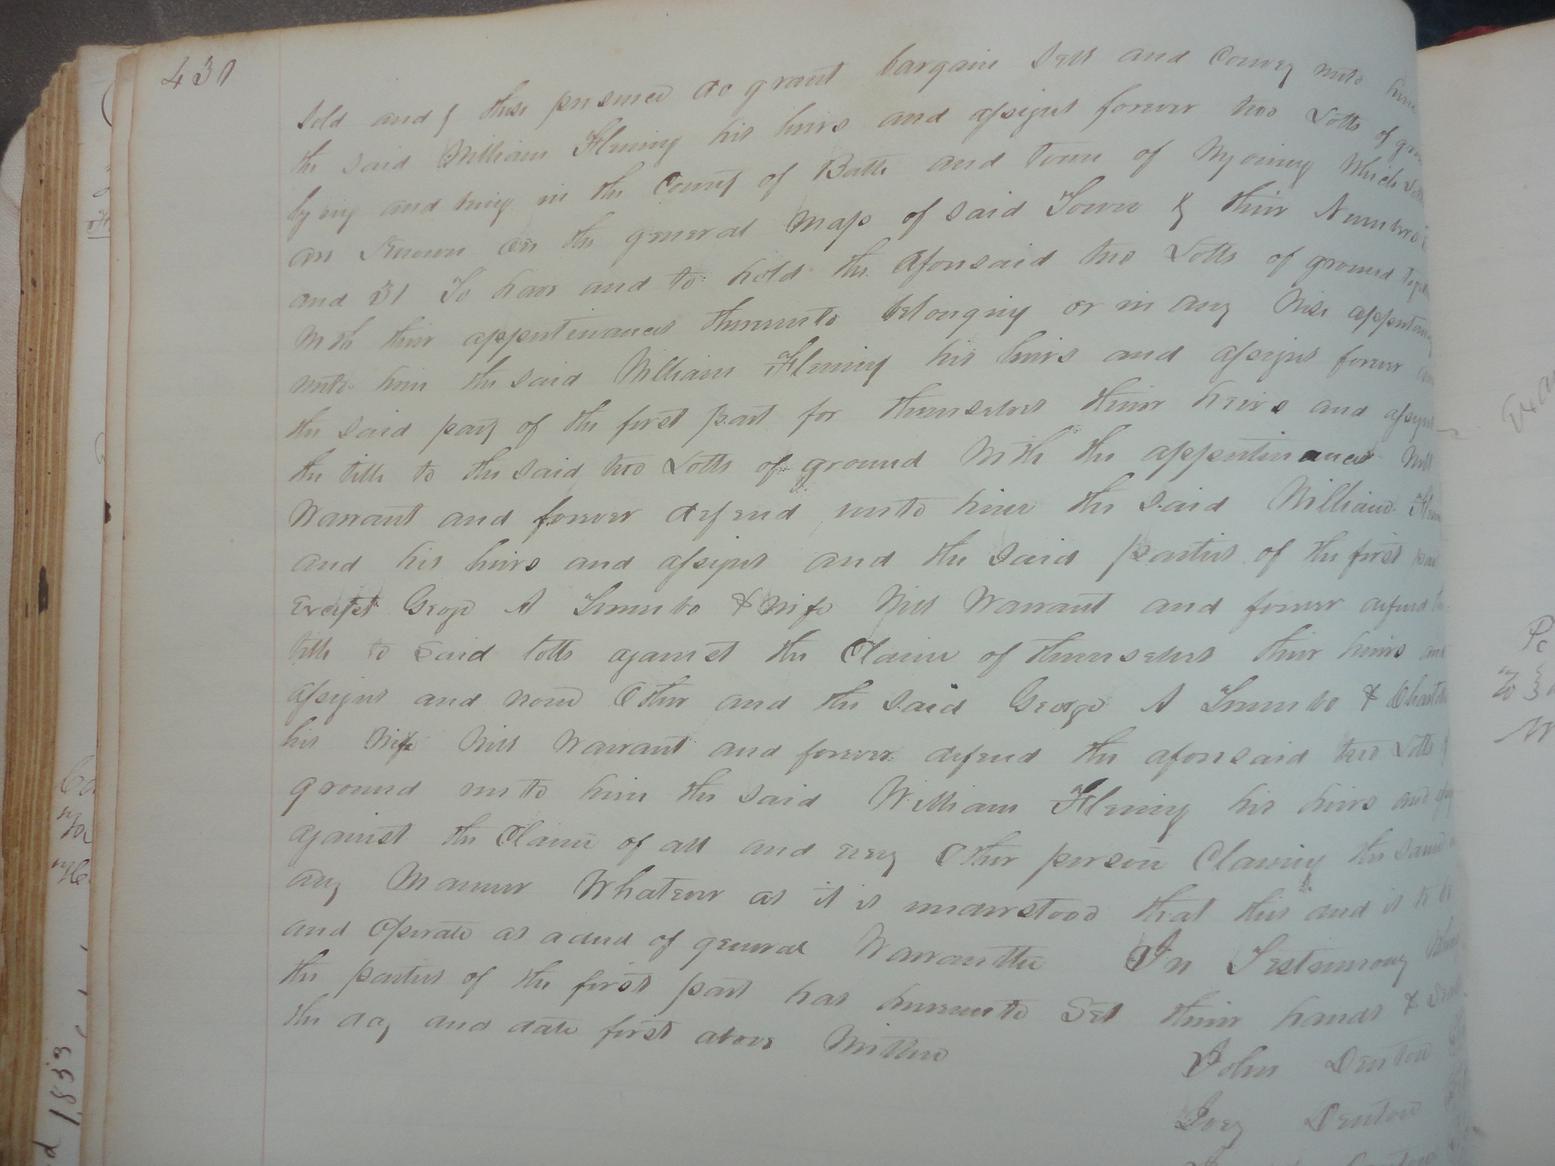 430
Sold and by these presence do grant bargain Sell and Convey unto him
the said William Fleming his heirs and assigns forever two Lotts of
lying and being in the County of Bath and town of Wyoming Which
are Known on the general Map of said Town by their Numbers
and 31 To have and to hold the Aforesaid two Lotts of ground
With their appertinances thereunto belonging or in any Wise
unto him the said William Fleming his heirs and assigns forever
the said party of the first part for themselves their heirs and assigns
the title to the said two Lotts of ground With the appertinances Will
Warrant and forever defend unto him the said William
and his heirs and assigns and the said parties of the first
Except George A Trumbo & Wife Will Warrant and forever defend
title to Said lotts against the Claim of themselves their heirs and
assigns and none Other and the said George A Trumbo &
his Wife Will Warrant and forever defend the aforesaid two Lotts
ground unto him the said William Fleming his heirs and
against the Claim of all and every Other person Claiming the same
any Manner Whatever as it is understood that this and is to be
and Operate as a deed of general Warranttee In Testimony
the parties of the first part has hereunto Set their hands &
the day and date first above Written
John Denton
Joey Denton
1833